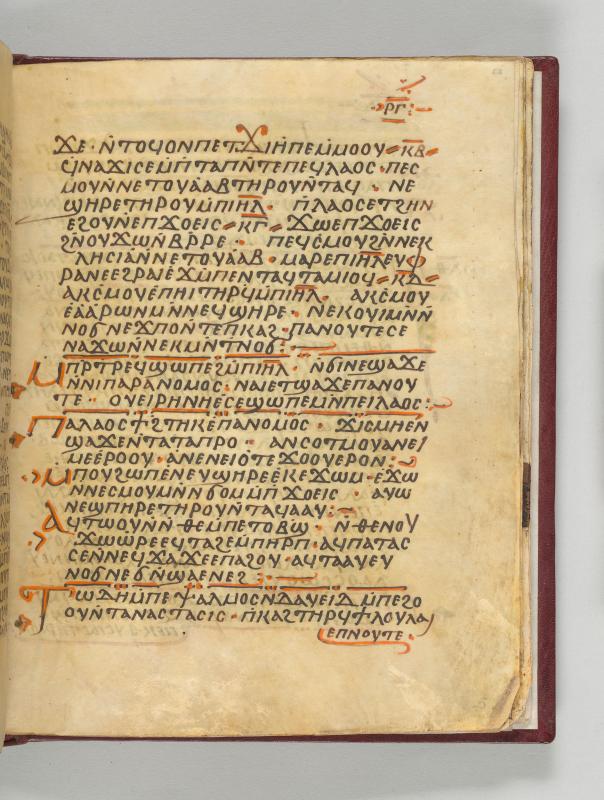 ⲣⲅ
ϫⲉ · ⲛ̄ⲧⲟϥⲟⲛⲡⲉⲧϫⲓⲏⲡⲉⲙ̄ⲙⲟⲟⲩ ⲕ̄ⲃ̄
ϥⲛⲁϫⲓⲥⲉⲙ̄ⲡⲧⲁⲡⲛ̄ⲧⲉⲡⲉϥⲗⲁⲟⲥ · ⲡⲉⲥ
ⲙⲟⲩⲛ̄ⲛⲉⲧⲟⲩⲁⲁⲃⲧⲏⲣⲟⲩⲛ̄ⲧⲁϥ · ⲛⲉ
ϣⲏⲣⲉⲧⲏⲣⲟⲩⲙ̄ⲡⲓ̄ⲏ̄ⲗ̄ · ⲡ̄ⲗⲁⲟⲥⲉⲧϩⲏⲛ
ⲉϩⲟⲩⲛⲉⲡϫⲟⲉⲓⲥ ⲕ̄ⲅ̄ ϫⲱⲉⲡϫⲟⲉⲓⲥ
ϩⲛ̄ⲟⲩϫⲱⲛ̄ⲃ̄ⲣ̄ⲣⲉ · ⲡⲉϥⲥⲙⲟⲩϩⲛ̄ⲛⲉⲕ
ⲕⲗⲏⲥⲓⲁⲛ̄ⲛⲉⲧⲟⲩⲁⲁⲃ · ⲙⲁⲣⲉⲡⲓ̄ⲏ̄ⲗ̄ⲉⲩⲫ
ⲣⲁⲛⲉⲉϩⲣⲁⲓⲉϫⲙ̄ⲡⲉⲛⲧⲁϥⲧⲁⲙⲓⲟϥ ⲕ̄ⲇ̄
ⲁⲕⲥⲙⲟⲩⲉⲡⲏⲓⲧⲏⲣϥⲙ̄ⲡⲓ̄ⲏ̄ⲗ̄ · ⲁⲕⲥⲙⲟⲩ
ⲉⲁⲁⲣⲱⲛⲙⲛ̄ⲛⲉϥϣⲏⲣⲉ · ⲛⲉⲕⲟⲩⲓⲙⲛ̄ⲛ
ⲛⲟϭⲛⲉϫⲡⲟⲛ̄ⲧⲉⲡⲕⲁϩ · ⲡⲁⲛⲟⲩⲧⲉⲥⲉ
ⲛⲁϫⲱⲛ̄ⲛⲉⲕⲙⲛ̄ⲧⲛⲟϭ :
ⲙⲡⲣ̄ⲧⲣⲉϥϣⲱⲡⲉϩⲙ̄ⲡⲓ̄ⲏ̄ⲗ̄ · ⲛ̄ϭⲓⲛⲉϣⲁϫⲉ
ⲛ̄ⲛⲓⲡⲁⲣⲁⲛⲟⲙⲟⲥ · ⲛⲁⲓⲉⲧϣⲁϫⲉⲡⲁⲛⲟⲩ
ⲧⲉ · ⲟⲩⲉⲓⲣⲏⲛⲏⲉⲥⲉϣⲱⲡⲉⲙⲛ̄ⲡⲉⲓⲗⲁⲟⲥ :
ⲡⲁⲗⲁⲟⲥϯϩⲧⲏⲕⲉⲡⲁⲛⲟⲙⲟⲥ · ϫⲓⲥⲙⲏⲉⲛ
ϣⲁϫⲉⲛⲧⲁⲧⲁⲡⲣⲟ · ⲁⲛⲥⲟⲧⲙⲟⲩⲁⲛⲉⲓ
ⲙⲉⲉⲣⲟⲟⲩ · ⲁⲛⲉⲛⲉⲓⲟⲧⲉϫⲟⲟⲩⲉⲣⲟⲛ :
ⲙⲡⲟⲩϩⲱⲡⲉⲛⲉⲩϣⲏⲣⲉⲉⲕⲉϫⲱⲙ · ⲉϫⲱ
ⲛⲛⲉⲥⲙⲟⲩⲙⲛ̄ⲛϭⲟⲙⲙ̄ⲡϫⲟⲉⲓⲥ · ⲁⲩⲱ
ⲛⲉϣⲡⲏⲣⲉⲧⲏⲣⲟⲩⲛ̄ⲧⲁϥⲁⲁⲩ :
ⲁϥⲧⲱⲟⲩⲛⲛ̄ϭⲉⲙⲡⲉⲧⲟⲃϣ · ⲛ̄ⲑⲉⲛⲟⲩ
ϫⲱⲱⲣⲉⲉϥⲧⲁϩⲉⲙ̄ⲡⲏⲣⲡ · ⲁϥⲡⲁⲧⲁⲥ
ⲥⲉⲛ̄ⲛⲉϥϫⲁϫⲉⲉⲡⲁϩⲟⲩ · ⲁϥⲧⲁⲁⲩⲉⲩ
ⲛⲟϭⲛⲉϭⲛ̄ϣⲁⲉⲛⲉϩ :
ⲧⲱⲇⲏⲙ̄ⲡⲉⲯⲁⲗⲙⲟⲥⲛ̄ⲇⲁⲩⲉⲓⲇⲙ̄ⲡⲉϩⲟ
ⲟⲩⲛ̄ⲧⲁⲛⲁⲥⲧⲁⲥⲓⲥ · ⲡⲕⲁϩⲧⲏⲣϥϯⲗⲟⲩⲗⲁⲓ
ⲉⲡⲛⲟⲩⲧⲉ ·